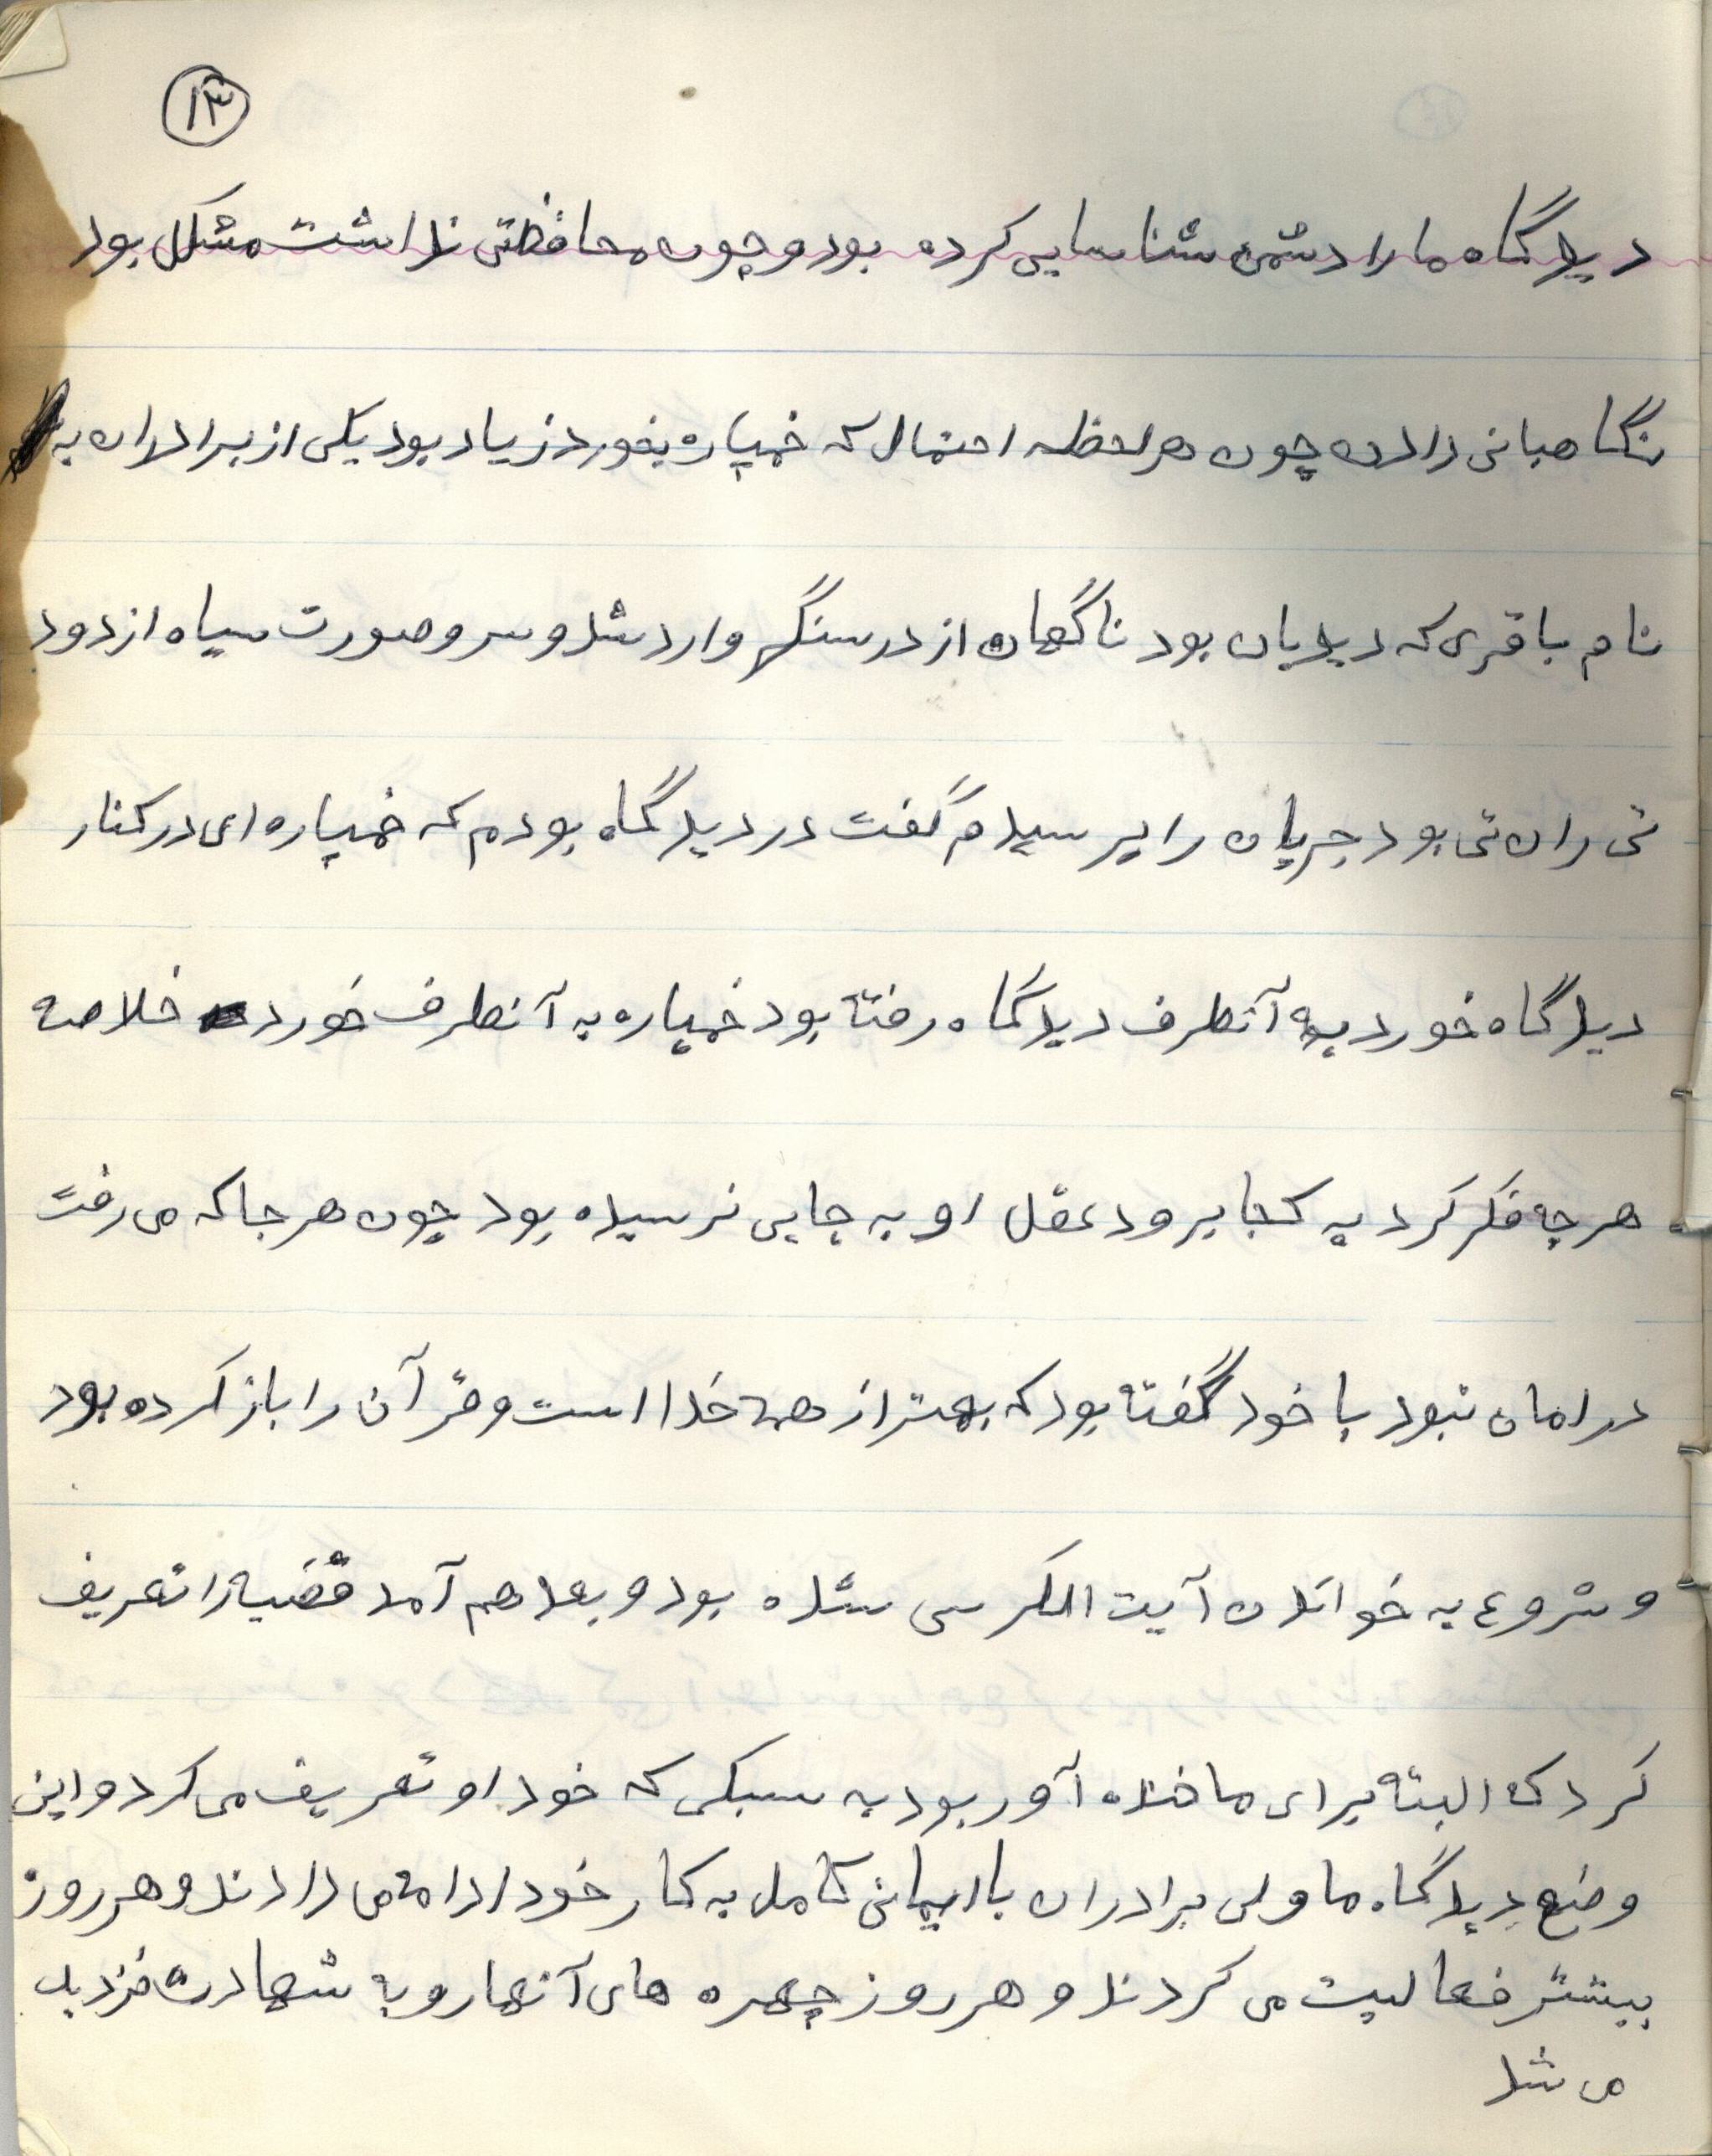 ۱۳
دیدگاه ما را دشمن شناسایی کرده بود و چون محافظتی نداشت مشکل بود
نگاهبانی دادن چون هر لحظه احتمال که خمپاره بخورد زیاد بود یکی از برادران به
نام باقری که دیدبان بود ناگهان از در سنگر وارد شد و سر و صورت سیاه از دود
بود جریان را پرسیدم گفت در دیدگاه بودم که خمپاره ای در کنار
دیدگاه خورد به آنطرف دیدگاه رفته بود خمپاره به آنطرف خورد خلاصه
هر چه فکر کرد به کجا برود عقل او به جایی نرسیده بود چون هر جا که می رفت
در امان نبود با خود گفته بود که بهتر از همه خدا است و قرآن را باز کرده بود
و شروع به خواندن آیت الکرسی شده بود و بعد هم آمد قضیه را تعریف
کرد که البته برای ما خنده آور بود به سبکی که خود او تعریف می کرد و این
وضع دیدگاه ما ولی برادران با ایمانی کامل به کار خود ادامه می دادند و هر روز
بیشتر فعالیت می کردند و هر روز چهره های آنها رو به شهادت نزدیک
می شد